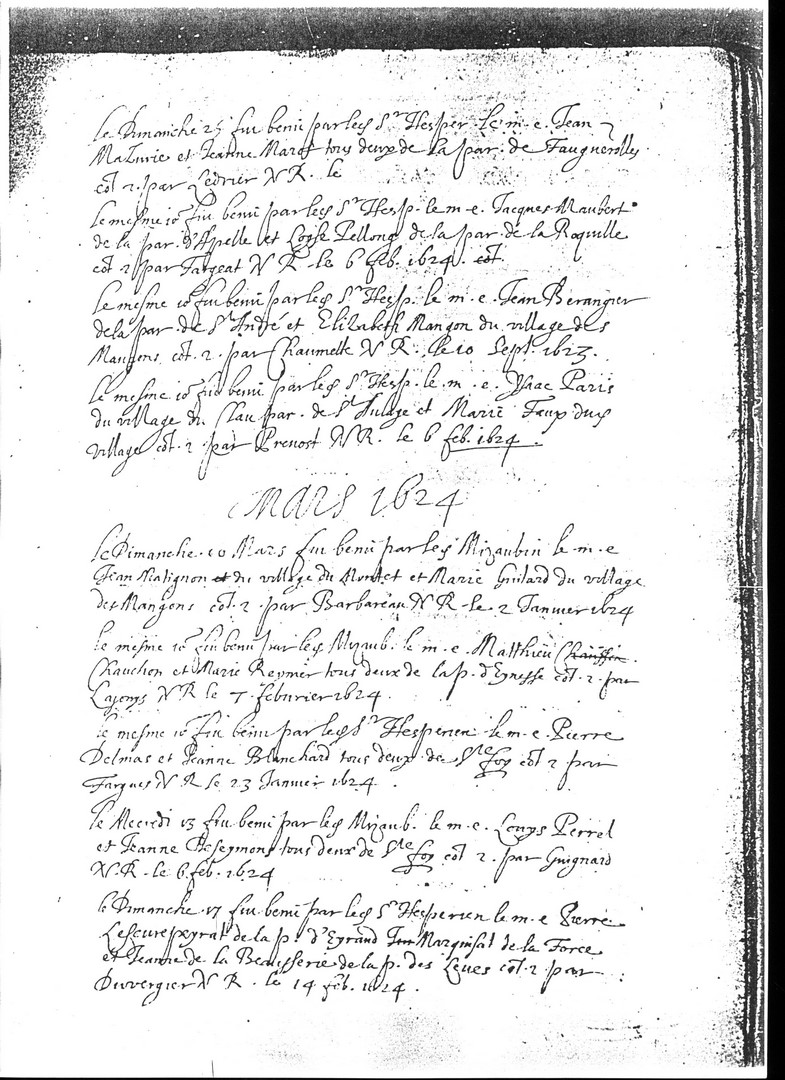 le Dimanche 25 fut beni par led Sr Hesper. le m. e. Jean
Maturie et Jeanne Marot tous deux de la par. de Fauguerolles
cot. 2. par Ledrier N R. le
le mesme jor fut beni par led Sr Hesp. le m. e. Jacques Maubert
de la par. d'Apelle et Loyse Pellong de la par. de la Roquille
cot. 2 par Fargeat N R. le 6 feb. 1624. cot.
le mesme jor fut beni par led Sr Hesp. le m. e. Jean Berangier
de la par. de St André et Elizabeth Mangon du village des
Mangons cot. 2. par Chaumette N R. le 10 Sept. 1623.
le mesme jor fut beni par led Sr Hesp. le m. e. Ysac Paris
du village du Clau par. de St Aulaye et Marie Faux dud
village cot. 2. par Prevost N R. le 6 feb. 1624.
MARS 1624
le Dimanche 10 Mars fut beni par led Mizaubin le m. e
Jean Matignon et du village du Montet et Marie Guilard du village
des Mangons cot. 2. par Barbareau N R. le. 2 Janvier 1624
le mesme jor fut beni par led Mizaub. le m. e. Matthieu Chauffin
Chauchon et Marie Reymer tous deux de la p. d'Eynesse cot. 2. par
Lajonys N R le 7. februrier 1624.
le mesme jor fut beni par led Sr Hesperien le m. e. Pierre
Delmas et Jeanne Blanchard tous deux de Ste foy cot 2 par
Fargues N R le 23 Janvier 1624.
le Mecredi 13 fut beni par led Mizaub. le m. e. Louys Perrel
et Jeanne Deseymons tous deux de Ste foy cot 2. par Guignard
N R. le 6 feb. 1624
le Dimanche. 17 fut beni par led Sr Hesperien le m. e Pierre
Lescure peyrat de la p. d'Eyraud Marquisat de la Force
et Jeanne de la Beausserie de la p. des Leves cot. 2. par
Duvergier N R. le 14 feb. 1624.